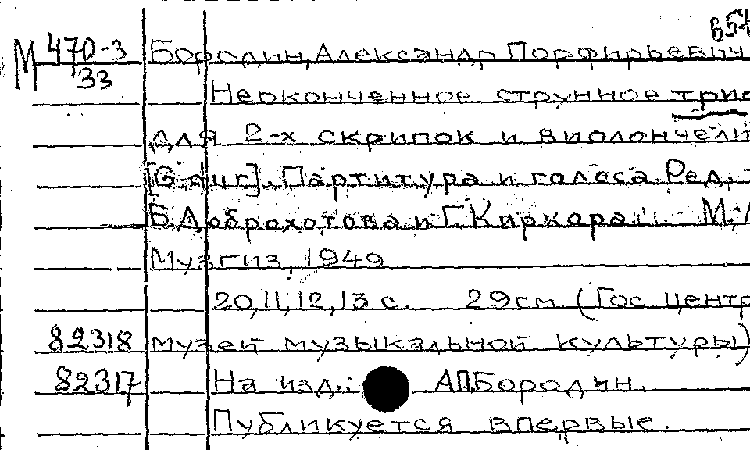 654
М 470-3 Бородин, Александр Порфирьевич
33
Неоконченное струнное трио
для 2-х скрипок и виолончели
[G dur]. Партитура и голоса. Ред.
Б. Доброхотова и Г. Киркора. М.
Музгиз, 1949
20, 11, 12, 13 с. 29 см (Гос центр
82318 музей музыкальной культуры)
82317 На изд.: А.П.Бородин.
Публикуется впервые.